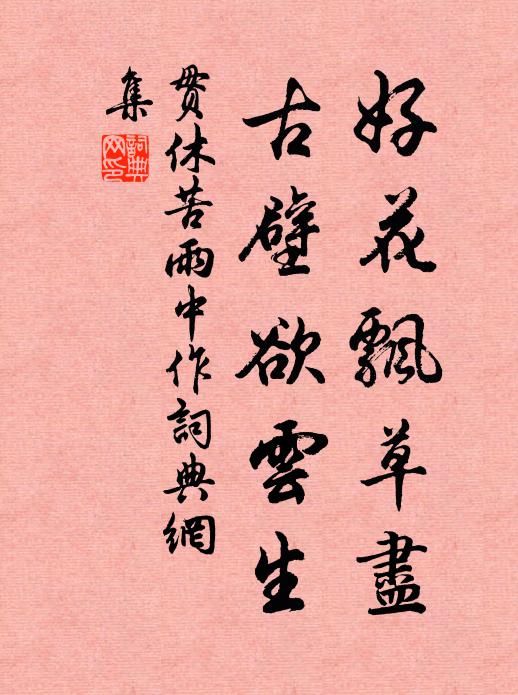 好花飄草盡
古壁欲雲生
貫休苦雨中作詞典網
集
詞典
网印